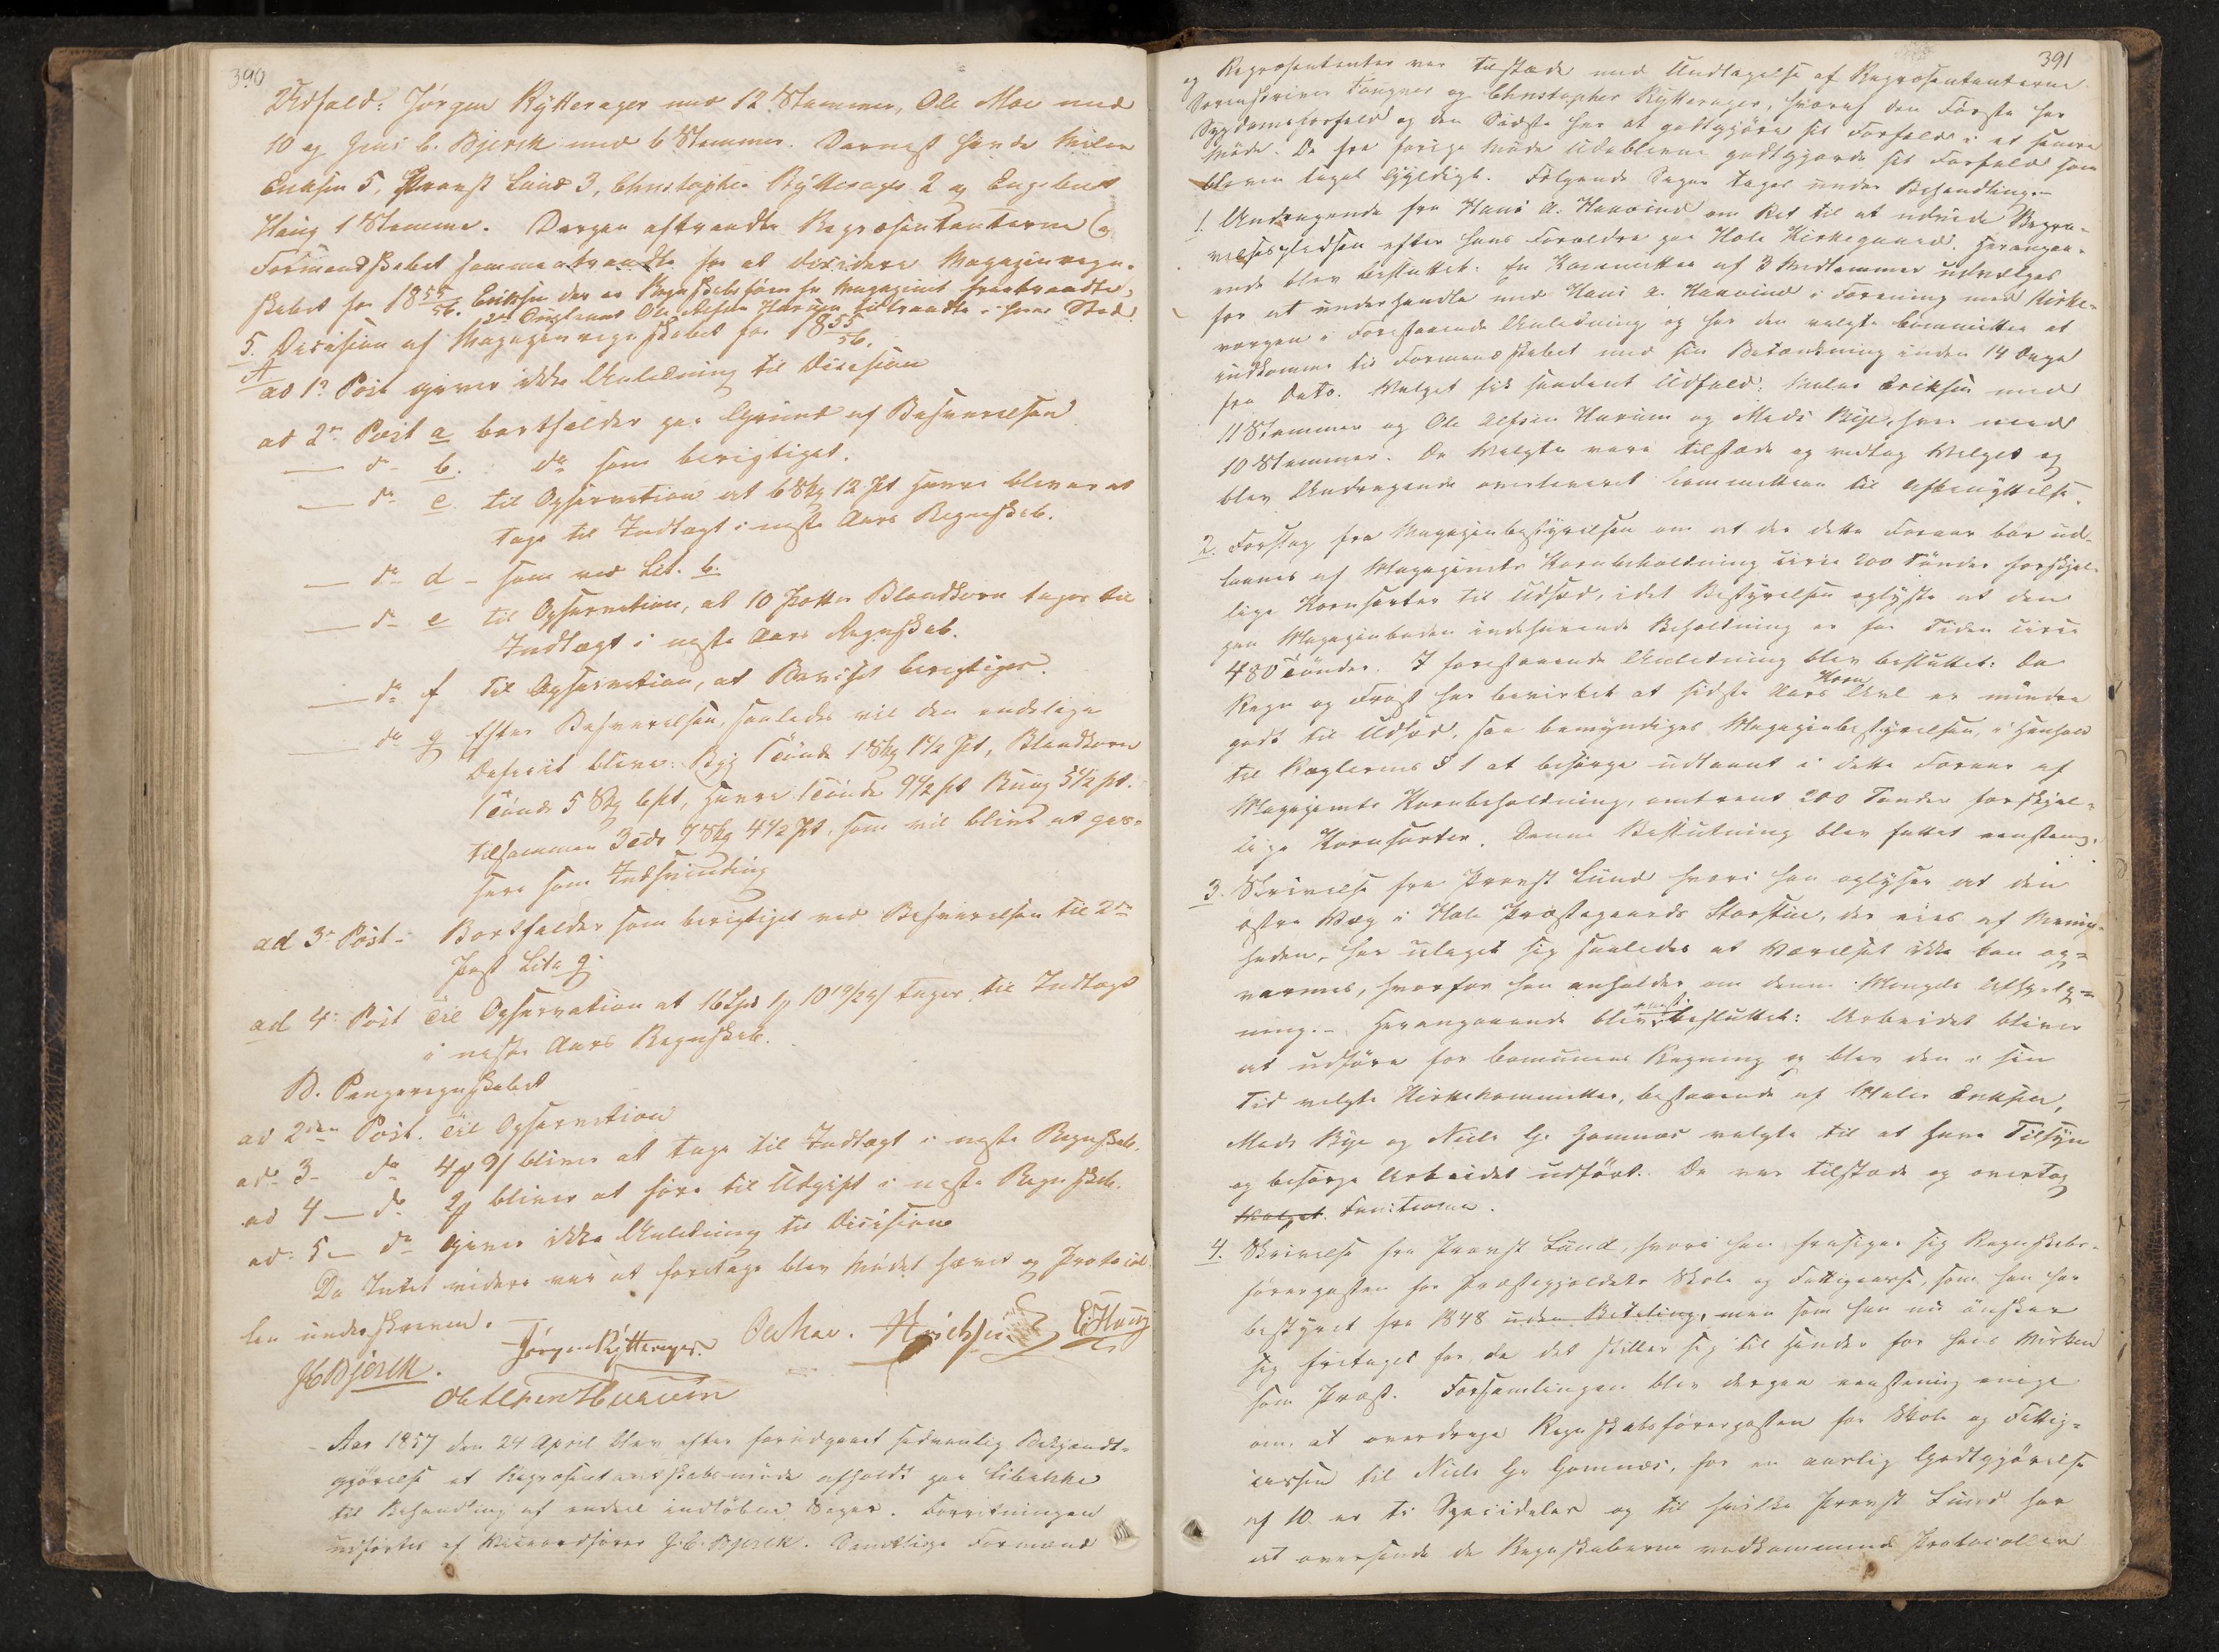 390
Udfald: Jørgen Rytterager med 12 Stemmer, Ole Moe med
10 og Jens C. Bjerck med 6 Stemmer. Dernæst havde Maler
Eriksen 5, Provst Lund 3, Christopher Rytterager 2 og Engebret
Haug 1 Stemme. Derpaa aftraadte Repræsentanterne og
Formandskabet sammentraadte for at decidere Magazinregn-
skabet for 1855/56. Eriksen der er Regnskabsfører for Magazinet fratraadte,
Ole Alfsen Hurum tiltraadte i hans Sted.
5. Decision af Magazinregnskabet for 1855/56.
A
ad 1ste Post giver ikke Anledning til Decision
ad 2den Post a bortfalder paa Grund af Besvarelsen
— do b. do som berigtiget.
— do c. til Observation at 6 Skg 12 Pt Havre bliver at
tage til Indtægt i næste Aars Regnskab.
— do d – som ved Lit. b.
— do e til Observation, at 10 Potter Blandkorn tages til
Indtægt i næste Aars Regnskab.
— do f til Observation, at Beviset berigtiges.
— do g Efter Besvarelsen, saaledes vil den endelige
Deficit blive: Byg 1 Tønde 1 Skg 1½ Pt, Blandkorn
1 Tønde 5 Skg 6 Pt, Havre 1 Tønde 9½ Pt Rug 5½ Pt.
tilsammen 3 Tdr 7 Skg 4½ Pt, som vil blive at pas-
sere som Indsvinding
ad 3die Post – Bortfalder som berigtiget ved Besvarelsen til 2den
Post Lit. g.
ad 4de Post Til Observation at 16 Spd 1 10 19/24 tages til Indtægt
i næste Aars Regnskab.
B. Pengeregnskabet
ad 2den Post. Til Observation
ad 3 – do 4 9 bliver at tage til Indtægt i næste Regnskab.
ad 4 — do 2 bliver at føre til Udgift i næste Regnskab.
ad 5 — do Giver ikke Anledning til Decision
Da Intet videre var at foretage blev Mødet hævet og Protocol-
len underskreven. —
JCBjerck. Jørgen Rytterager. Ole Moe. EHaug
Ole Alfsen Hurum
Aar 1857 den 24 April blev efter forudgaaet sædvanlig Bekjendt-
gjørelse et Repræsentantskabsmøde afholdt paa Libakke
til Behandling af endeel indløbne Sager. Forretningen
udførtes af Viceordfører J. C. Bjerck. Samtlige Formænd
391
og Repræsentanter var tilstæde med Undtagelse af Repræsentanterne
Sorenskriver Fougner og Christopher Rytterager, hvoraf den Første har
Sygdomsforfald og den Sidste har at godtgjøre sit Forfald i et senere
Møde. De fra forrige Møde Udeblevne godtgjorde sit Forfald som
bleven taget gyldigt. Følgende Sager toges under Behandling. –
1. Andragende fra Hans A. Haavind om Ret til at udvide Begra-
velsespladsen efter hans Forældre paa Hole Kirkegaard. Herangaa-
ende blev besluttet: En Kommittee af 3 Medlemmer udvælges
for at underhandle med Hans A. Haavind i Forening med Kirke-
vergen i Forestaaende Anledning og har den valgte Committee at
indkomme til Formandskabet med sin Betænkning inden 14 Dage
fra Dato. Valget fik saadant Udfald: Maler Eriksen med
11 Stemmer og Ole Alfsen Hurum og Mads Bye, hver med
10 Stemmer. De Valgte vare tilstæde og modtog Valget og
blev Andragende overleveret Committeen til Afbenyttelse.
2. Forslag fra Magazinbestyrelsen om at der dette Foraar bør ud-
laanes af Magazinets Kornbeholdning circa 200 Tønder forskjel-
lige Kornsorter til Udsæd, idet Bestyrelsen oplyste at den
paa Magazinboden indehavende Beholdning er for Tiden circa
480 Tønder. I forestaaende Anledning blev besluttet: Da
Regn og Frost har bevirket at sidste Aars Korn Avl er mindre
godt til Udsæd, saa bemyndiges Magazinbestyrelsen, i Henhold
til Reglernes § 1 at besørge udlaant i dette Foraar af
Magazinets Kornbeholdning, omtrent 200 Tønder forskjel-
lige Kornsorter. Denne Beslutning blev fattet eenstemig.
3. Skrivelse fra Provst Lund hvori han oplyser at den
østre Væg i Hole Præstegaards Storstue, der eies af Menig-
heden, har udaget sig saaledes at Værelset ikke kan op-
varmes, hvorfor han anholder om denne Mangels Afhjælp-
ning. – Herangaaende blev eenst. besluttet: Arbeidet bliver
at udføre for Comunens Regning og blev den i sin
Tid valgte Kirkekommittee, bestaaende af Maler Eriksen,
Mads Bye og Niels G. Gomnæs valgte til at have Tilsyn
og besørge Arbeidet udført. De var tilstæde og overtog
Valget. Functionen.
4. Skrivelse fra Provst Lund, hvori han frasiger sig Regnskabs-
førerposten for Præstegjeldets Skole og Fattigcasse, som han har
bestyret fra 1848 uden Betaling, men som han nu ønsker
sig fritaget for, da det stiller sig til Hinder for hans Virken
som Præst. Forsamlingen blev derpaa eenstemig enige
om, at overdrage Regnskabsførerposten for Skole og Fattig-
cassen til Niels G. Gomnæs, for en aarlig Godtgjørelse
af 10 er ti Speciedaler og til hvilke Provst Lund har
at oversende de Regnskaberne vedkommende Protocoller